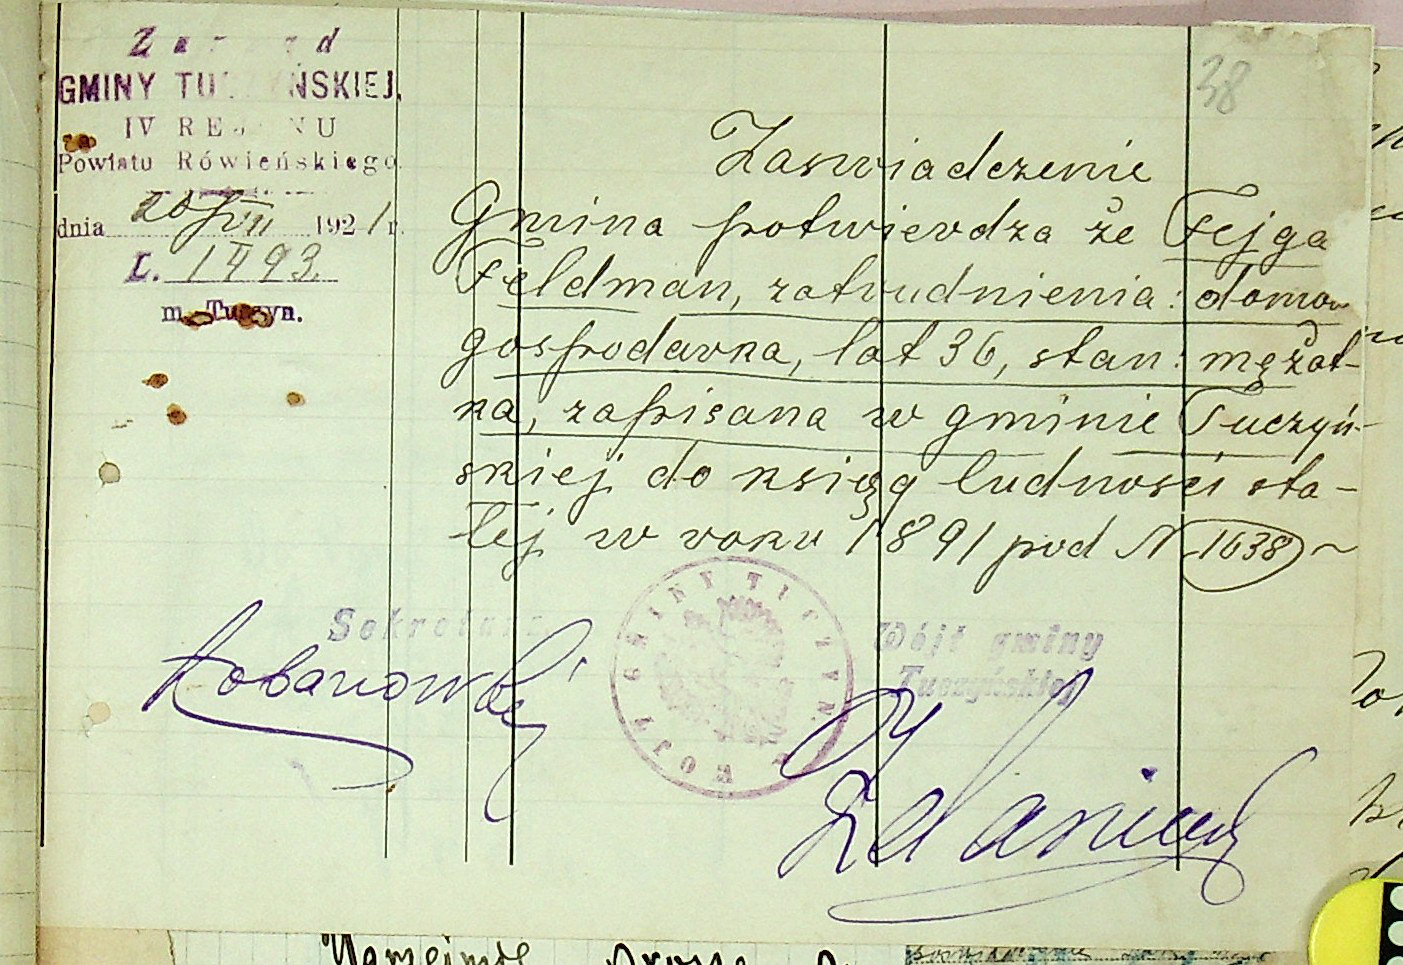 Zarząd
GMINY TUCZYŃSKIEJ,
IV REJONU
Powiatu Rówieńskiego
dnia 20/VIII 1921 r.
L. 1493.
m. Tuczyn.
38
Zaswiadczenie
Gmina potwierdza że Fejga
Feldman, zatrudnienia: domow
gospodarka, lat 36, stan: mężat-
ka, zapisana w gminie Tuczyń-
skiej do księg ludności sta-
łej w roku 1891 pod N 1638
Sekretarz
Wójt gminy
Tuczyńskiej
WÓJT GMINY TUCZYN